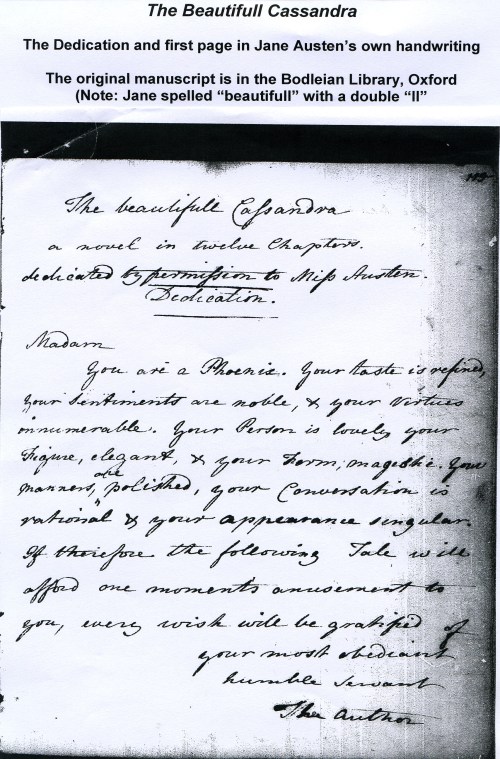 The Beautifull Cassandra
The Dedication and first page in Jane Austen's own handwriting
The original manuscript is in the Bodleian Library, Oxford
(Note: Jane spelled "beautifull" with a double "ll"
The beautifull Cassandra
a novel in twelve Chapters.
dedicated by permission to Miss Austen.
Dedication.
Madam
You are a Phoenix. Your taste is refined,
your Sentiments are noble, & your Virtues
innumerable. Your Person is lovely, your
Figure, elegant, & your Form, magestic. Your
manners, are polished, your Conversation is
rational & your appearance singular.
If therefore the following Tale will
afford one moments amusement to
you, every wish will be gratified of
your most obedient
humble Servant
The Author